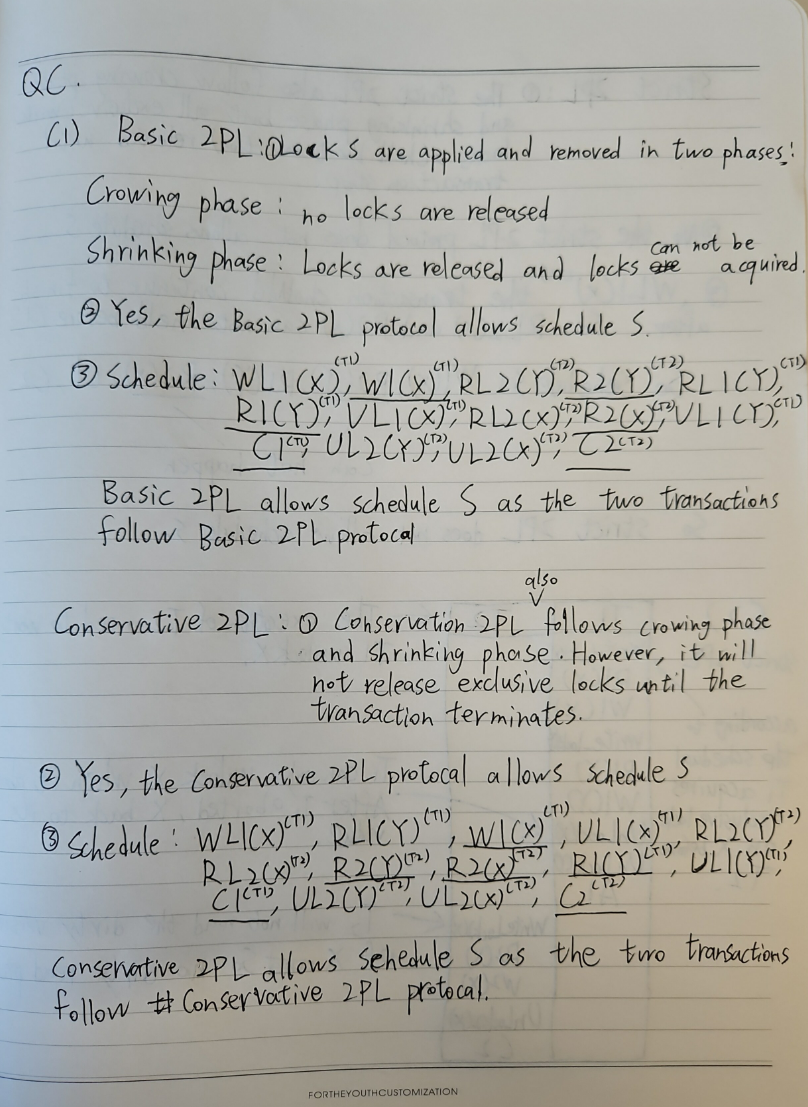 QC.
(1) Basic 2PL: ① Locks are applied and removed in two phases:
Crowing phase : no locks are released
Shrinking phase : Locks are released and locks can not be acquired.
② Yes, the Basic 2PL protocol allows schedule S.
③ Schedule : WL1(X)(T1), W1(X)(T1), RL2(Y)(T2), R2(Y)(T2), RL1(Y)(T1),
R1(Y)(T1), UL1(X)(T1), RL2(X)(T2), R2(X)(T2), UL1(Y)(T1),
C1(T1), UL2(Y)(T2), UL2(X)(T2), C2(T2)
Basic 2PL allows schedule S as the two transactions
follow Basic 2PL protocal
also
Conservative 2PL : ① Conservation 2PL follows crowing phase
and shrinking phase. However, it will
not release exclusive locks until the
transaction terminates.
② Yes, the Conservative 2PL protocal allows schedule S
③ Schedule : WL1(X)(T1), RL1(Y)(T1), W1(X)(T1), UL1(X)(T1), RL2(Y)(T2)
RL2(X)(T2), R2(Y)(T2), R2(X)(T2), R1(Y)(T1), UL1(Y)(T1),
C1(T1), UL2(Y)(T2), UL2(X)(T2), C2(T2)
Conservative 2PL allows schedule S as the two transactions
follow Conservative 2PL protocal.
FORTHEYOUTHCUSTOMIZATION